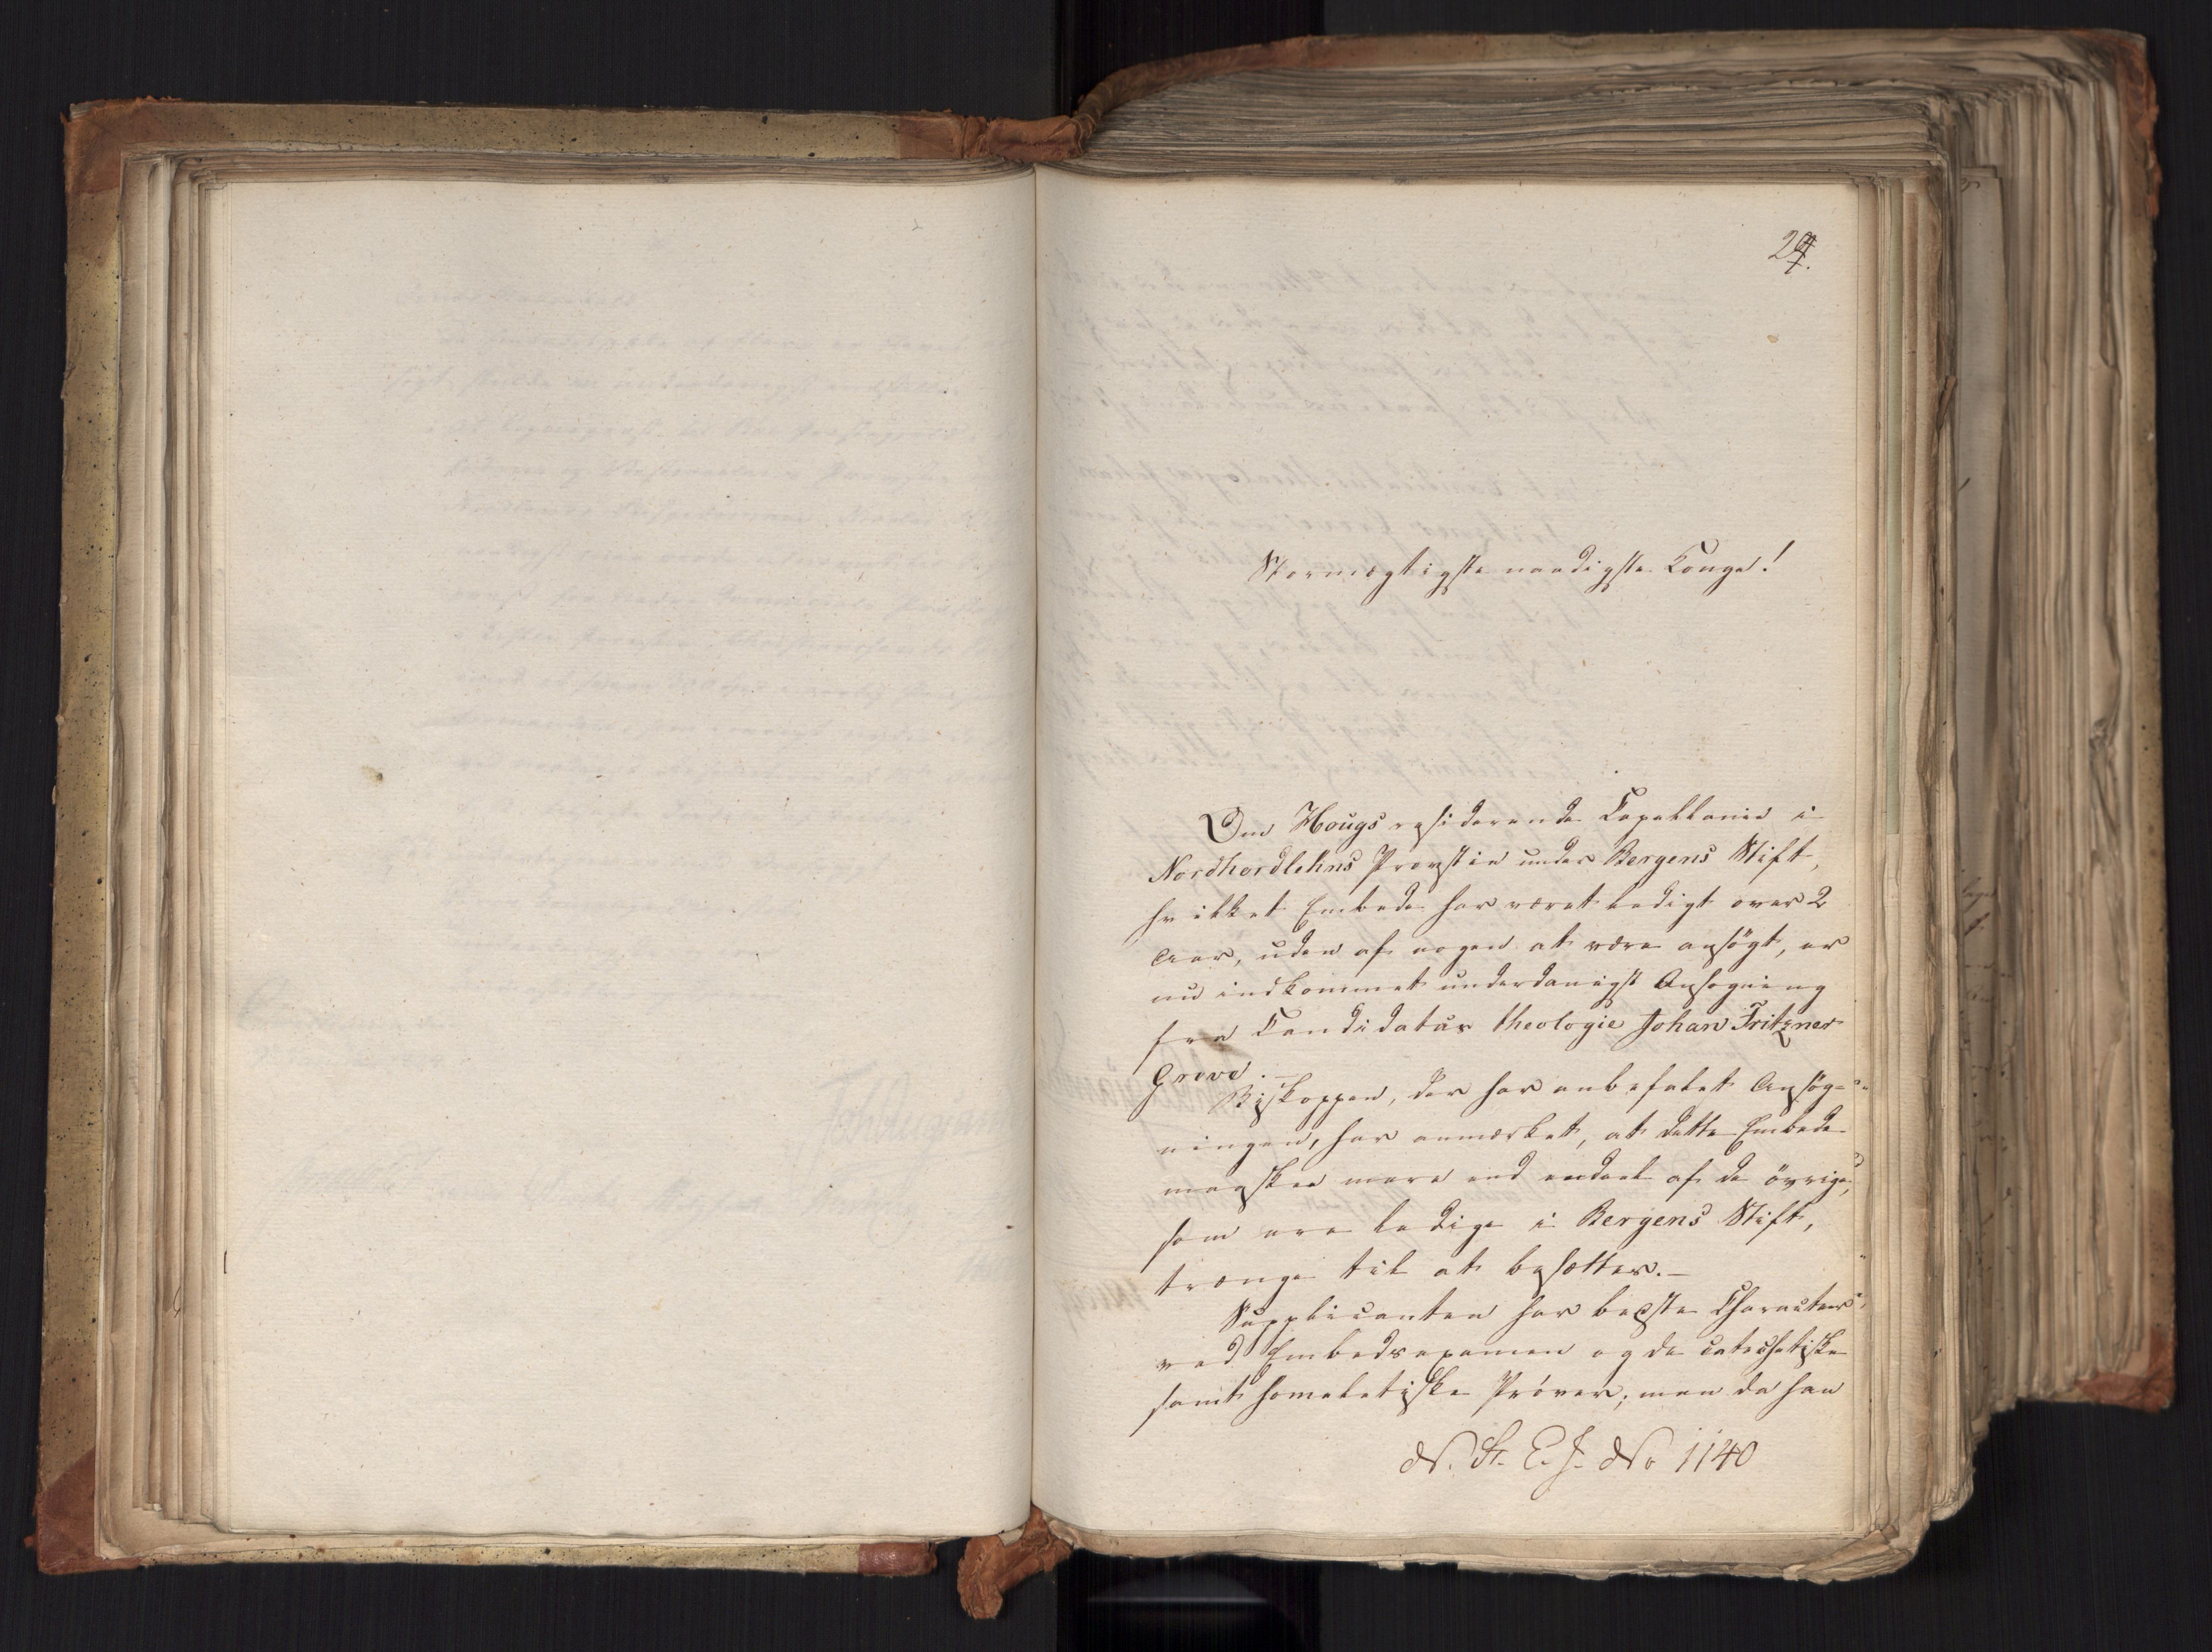 24.
Stormægtigste naadigste Konge!
Om Hougs residerende Capellanie i
Nordhordlehns Provstie under Bergens Stift,
hvilket Embede har været ledigt over 2
Aar, uden af nogen at være ansögt, er
nu indkommet underdanigst Ansögning
fra Candidatus theologie Johan Fritzner
Greve.
Biskoppen, der har anbefalet Ansög-
ningen, har anmærket, at dette Embede
maaskee mere end endeel af de övrige,
som ere ledige i Bergens Stift,
trænge til at besættes.—
Supplicanten har bedste Charakteer
ved Embedsexamen og de catechetiske
samt homeletiske Pröver; men da han
N. St. E. J. No 1140